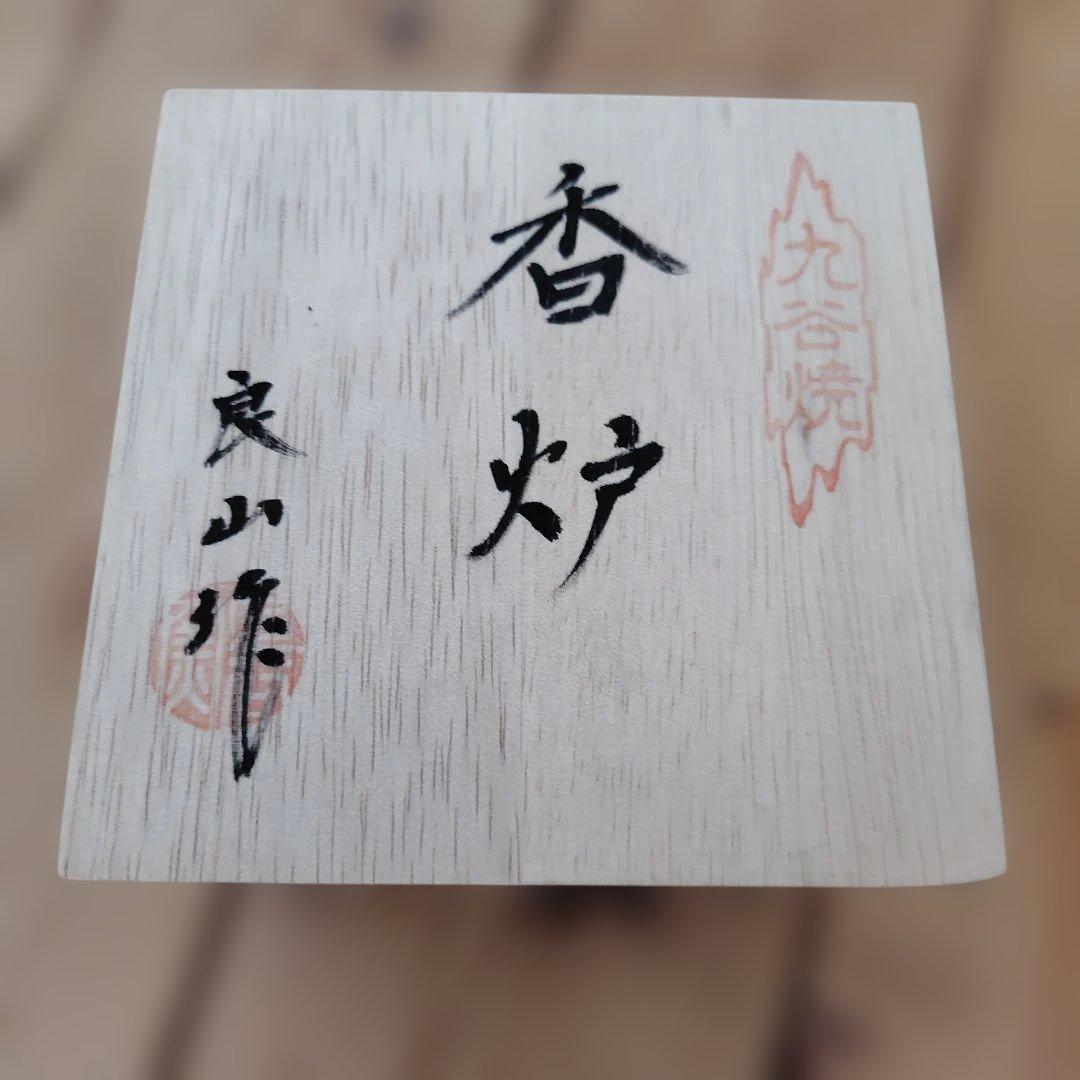 九谷焼
香炉
良山作